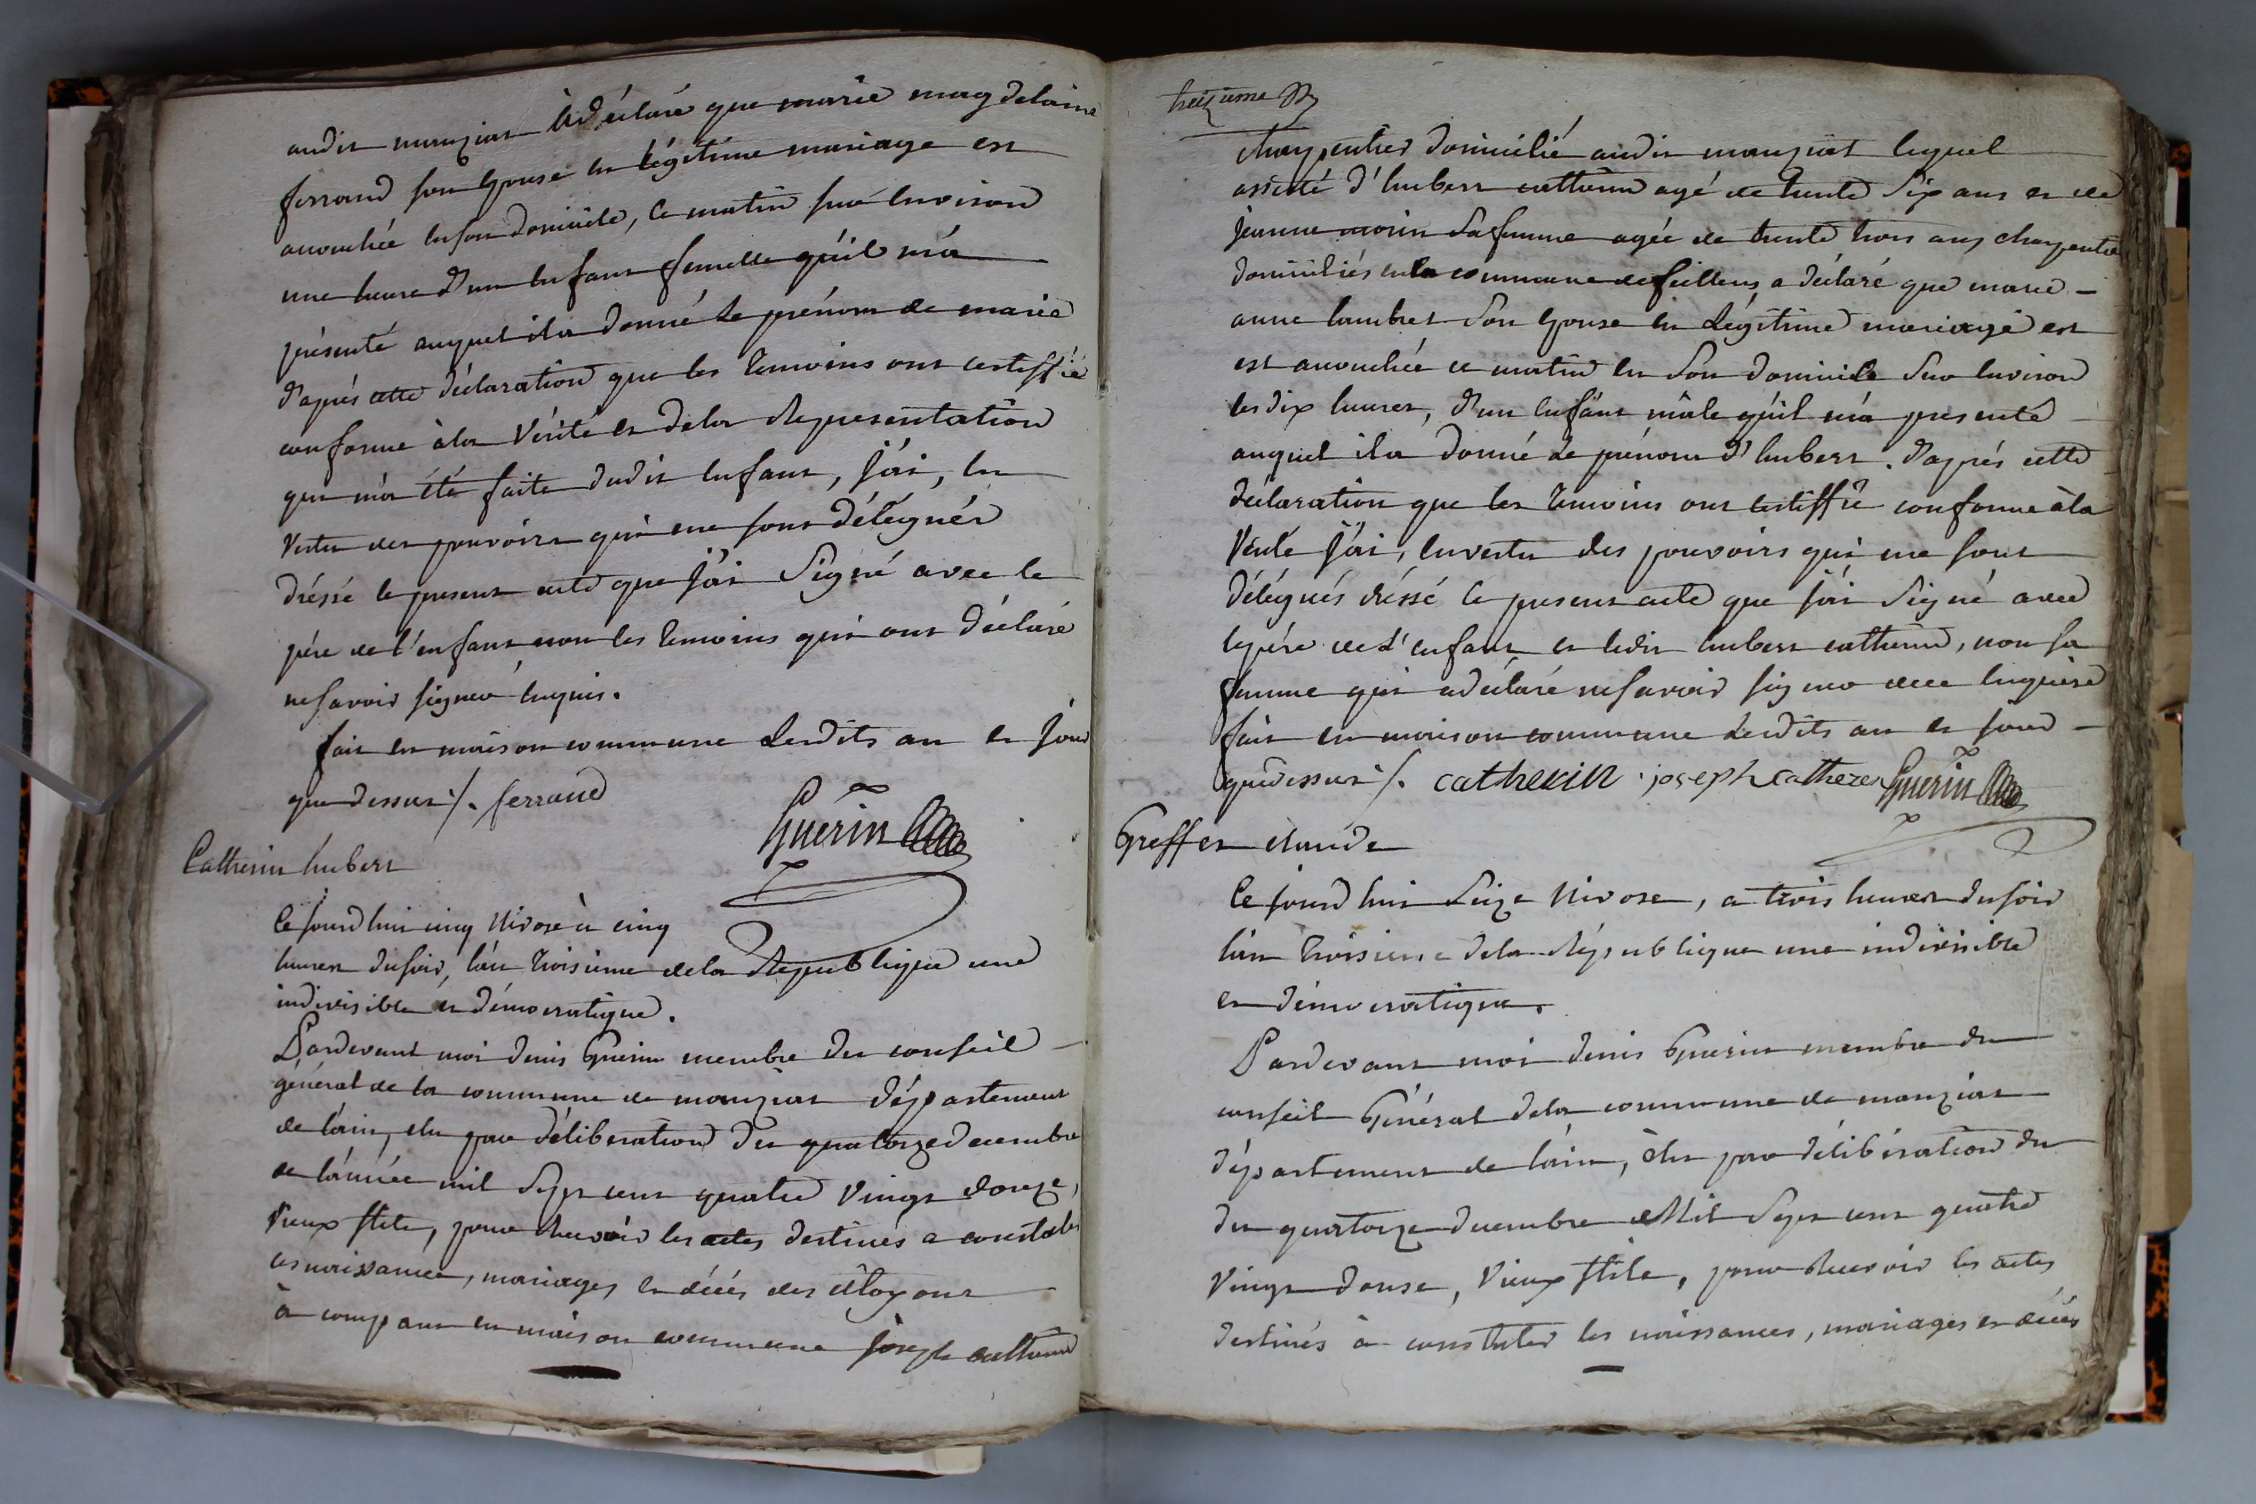 audit manziat à déclaré que marie magdelaine
ferrand son Epouse en légitime mariage est
accouchée en son domicile, ce matin sur Environ
une heure d'un Enfant femelle qu'il m'a
présenté auquel il a donné le prénom de marie
d'aprés cette déclaration que les temoins ont certiffié
conforme à la vérité et de la Representation
qui m'a été faite dudit Enfant, j'ai, En
vertu des pouvoirs qui me sont délégués
dréssé le present acte que j'ai Signé avec le
pére de l'enfant non les temoins qui ont déclaré
ne savoir signer Enquis.
fait en maison commune Lesdits an et jour
que dessus /. ferrand
Guerin
Catherin hubert
Ce jourd'hui cinq Nivose à cinq
heures du soir, l'an troisieme de la Republique une
indivisible et démocratique.
Pardevant moi denis Guerin membre du conseil
général de la commune de manziat département
de l'ain, élu par délibération du quatorze decembre
de l'année mil Sept cent quatre vingt douze,
vieux stile, pour Recevoir les actes destinés a constater
les naissances, mariages et décés des citoyens
à comparu en maison commune joseph catherin
treizieme
charpentier domicilié audit manziat lequel
assisté d'hubert catherin agé de trente Six ans et de
jeanne morin Sa femme agée de trente trois ans charpentier
domiciliés en la commune de feillens a déclaré que marie
anne lambert Son Epouse en Légitime mariage est
est accouchée ce matin en Son domicile Sur Environ
les dix heures, d'un Enfant mâle qu'il m'a presenté
auquel il a donné le prénom d'hubert. d'aprés cette
déclaration que les temoins ont certiffié conforme à la
vérité j'ai, En vertu des pouvoirs qui me sont
délégués dréssé le present acte que j'ai Signé avec
le pére de L'enfant et ledit hubert catherin, non sa
femme qui a déclaré ne savoir signer de ce Enquise
fait en maison commune Lesdits an et jour
que dessus /. catherin joseph catherin Guerin
Greffet claude
Ce jourd'hui Seize Nivose, a trois heures du soir
l'an troisieme de la République une indivisible
et démocratique.
Pardevant moi denis Guerin membre du
conseil Général de la commune de manziat
département de l'ain, élu par délibération du
du quatorze decembre Mil Sept cent quatre
vingt douse, vieux stile, pour Recevoir les actes
destinés à constater les naissances, mariages et décés